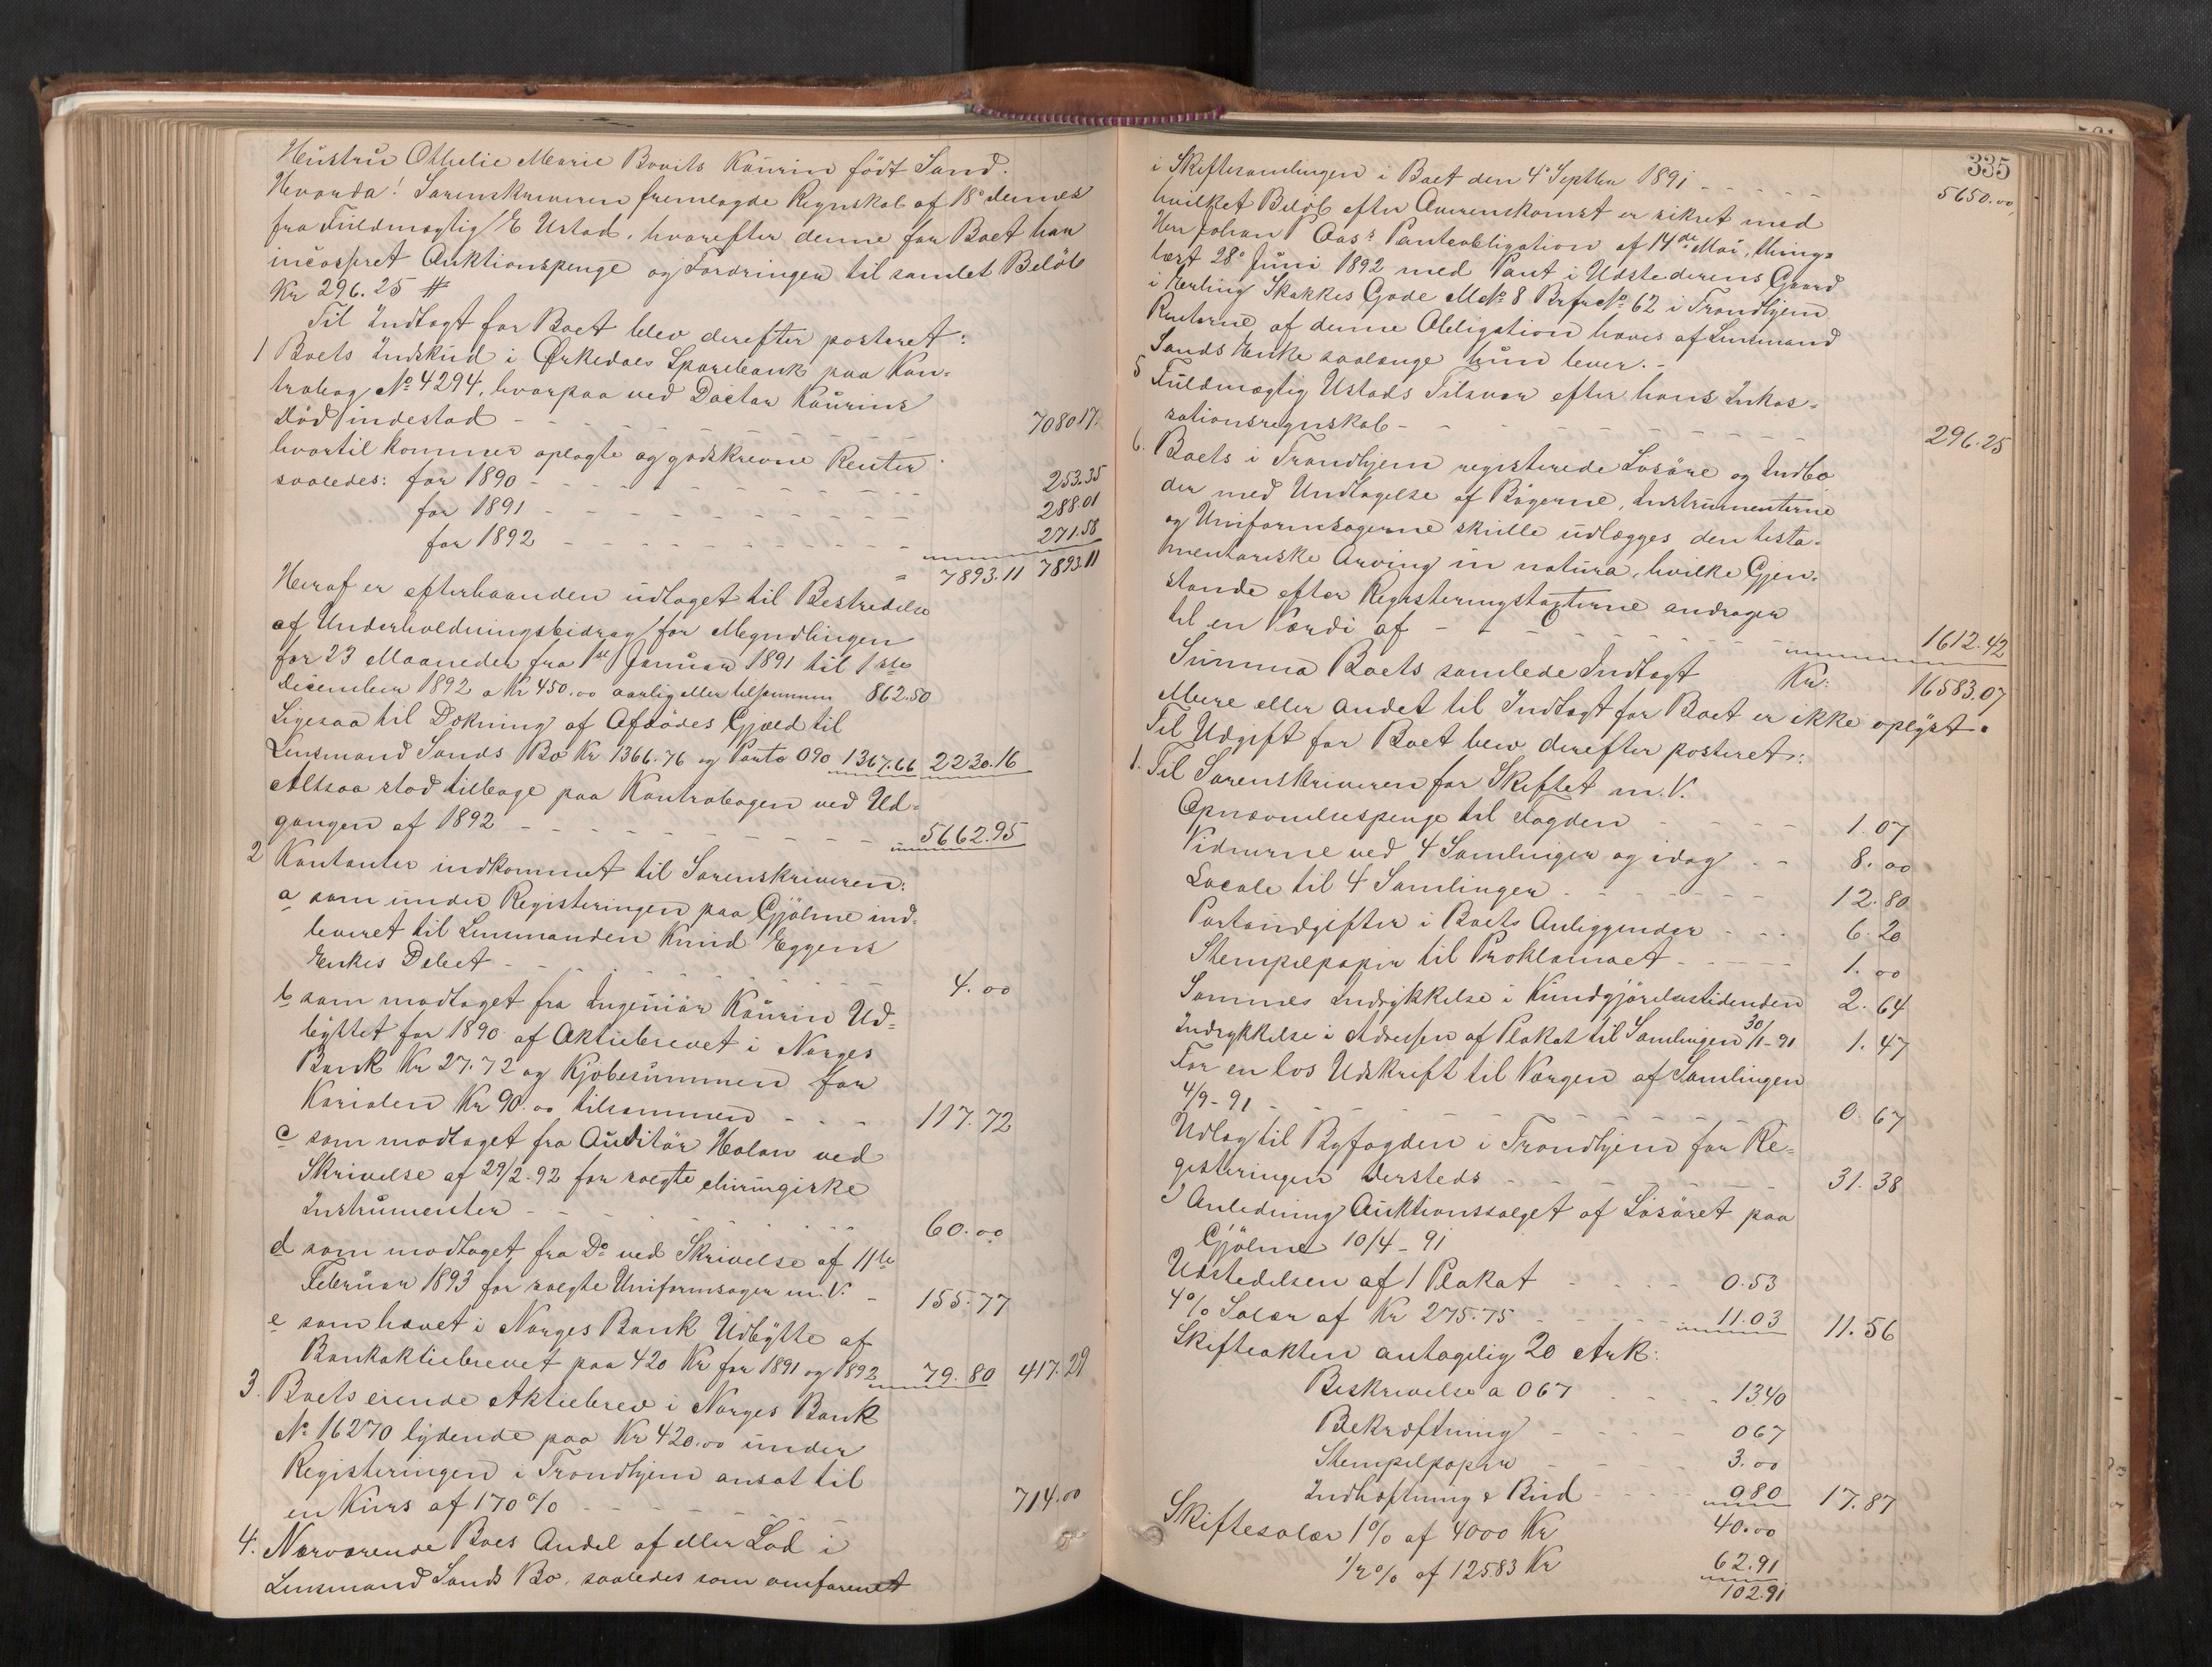 Hustru Othelie Marie Bovits Kaurin født Sand.
Hvorda! Sorenskriveren fremlagde Regnskab af 18de dennes
fra Fuldmægtig E Ustad, hvorefter denne for Boet har
incasseret Auktionspenge og Fordringer til samlet Beløb
Kr 296.25 #
Til Indtægt for Boet blev derefter posteret:
1 Boets Indskud i Ørkedals Sparebank paa Kon-
trabog No 4294, hvorpaa ved Doctor Kaurins
Død indestod - - - - 7080 17.
hvortil kommer oplagte og godskrevne Renter
saaledes: for 1890 - - - - 253.35
for 1891 - - - - 288.01
for 1892 - - - - 271.58
= 7893.11 7893.11
Heraf er efterhaanden udtaget til Bestridelse
af Underholdningsbidrag for Myndlingen
for 23 Maaneder fra 1ste Januar 1891 til 1ste
December 1892 a Kr 450.00 aarlig eller tilsammen 862.50
Ligesaa til Dækning af Afdødes Gjæld til
Lensmand Sands Bo Kr 1366.76 og Porto 090 1367.66 2230.16
Altsaa stod tilbage paa Kontrabogen ved Ud-
gangen af 1892 - - - - 5662.95
2 Kontanter indkommet til Sorenskriveren:
a som under Registeringen paa Gjølme ind-
leveret til Lensmanden Knud Eggens
Enkes Debet - - - - 4.00
b som modtaget fra Ingeniør Kaurin Ud-
byttet for 1890 af Aktiebrevet i Norges
Bank Kr 27.72 og Kjøbesummen for
Kariolen Kr 90.00 tilsammen - - - 117.72
c som modtaget fra Auditør Holan ved
Skrivelse af 29/2-92 for solgte chirurgiske
Instrumenter - - - - 60.00
d som modtaget fra Do ved Skrivelse af 11te
Februar 1893 for solgte Uniformsager m.V. - 155.77
e som hævet i Norges Bank Udbytte af
Bankaktiebrevet paa 420 Kr for 1891 og 1892 79.80 417.29
3. Boets eiende Aktiebrev i Norges Bank
No 16270 lydende paa Kr 420.00 under
Registeringen i Trondhjem ansat til
en Kurs af 170% - - - - 714.00
4. Nærværende Boes Andel af eller Lod i
Lensmand Sands Bo, saaledes som omforenet
335
i Skiftesamlingen i Boet den 4de Septbr 1891 - - - - 5650.00
hvilket Beløb efter Overenskomst er sikret med
Herr Johan P Aas's Panteobligation af 14de Mai, thing-
læst 28de Juni 1892 med Pant i Udstederens Gaard
i Erling Skakkes Gade MNo 8 BrfrNo 62 i Trondhjem
Renterne af denne Obligation hæves af Lensmand
Sands Enke saalænge hun lever. -
5 Fuldmægtig Ustads Tilsvar efter hans Inkas-
sationsregnskab - - - - 296.25
6. Boets i Trondhjem registerede Løsøre og Indbo
der med Undtagelse af Bøgerne, Instrumenterne
og Uniformsagerne skulle udlægges den testa-
mentariske Arving in natura, hvilke Gjen-
stande efter Registeringstaxterne andrager
til en Værdi af - - - - 1612.42
Summa Boets samlede Indtægt Kr: 16583.07
Mere eller andet til Indtægt for Boet er ikke oplyst.
Til Udgift for Boet blev derefter posteret:
1. Til Sorenskriveren for Skiftet m.V.
Opnævnelsespenge til Fogden - - - 1.07
Vidnerne ved 4 Samlinger og idag - - 8.00
Locale til 4 Samlinger - - - - 12.80
Portoudgifter i Boets Anliggender - - - 6.20
Stempelpapir til Proklamaet - - - - 1.00
Sammes Indrykkelse i Kundgjørelsestidenden 2.64
Indrykkelse i Adressen af Plakat til Samlingen 30/1-91 1.47
For en løs Udskrift til Værgen af Samlingen
4/9-91 - - - - 0.67
Udlæg til Byfogden i Trondhjem for Re-
gisteringen dersteds - - - - 31.38
I Anledning Auktionssalget af Løsøret paa
Gjølme 10/4-91
Udstedelsen af 1 Plakat - - - - 0.53
4% Salær af Kr 275.75 - - - - 11.03 11.56
Skifteakten antagelig 20 Ark:
Beskrivelse a 067 - - - 13.40
Bekræftning - - - - 067
Stempelpapir - - - - 3.00
Indhæftning & Bind - - - - 0.80 17.87
Skiftesalær 1% af 4000 Kr 40.00
1/2% af 12583 Kr 62.91
102.91